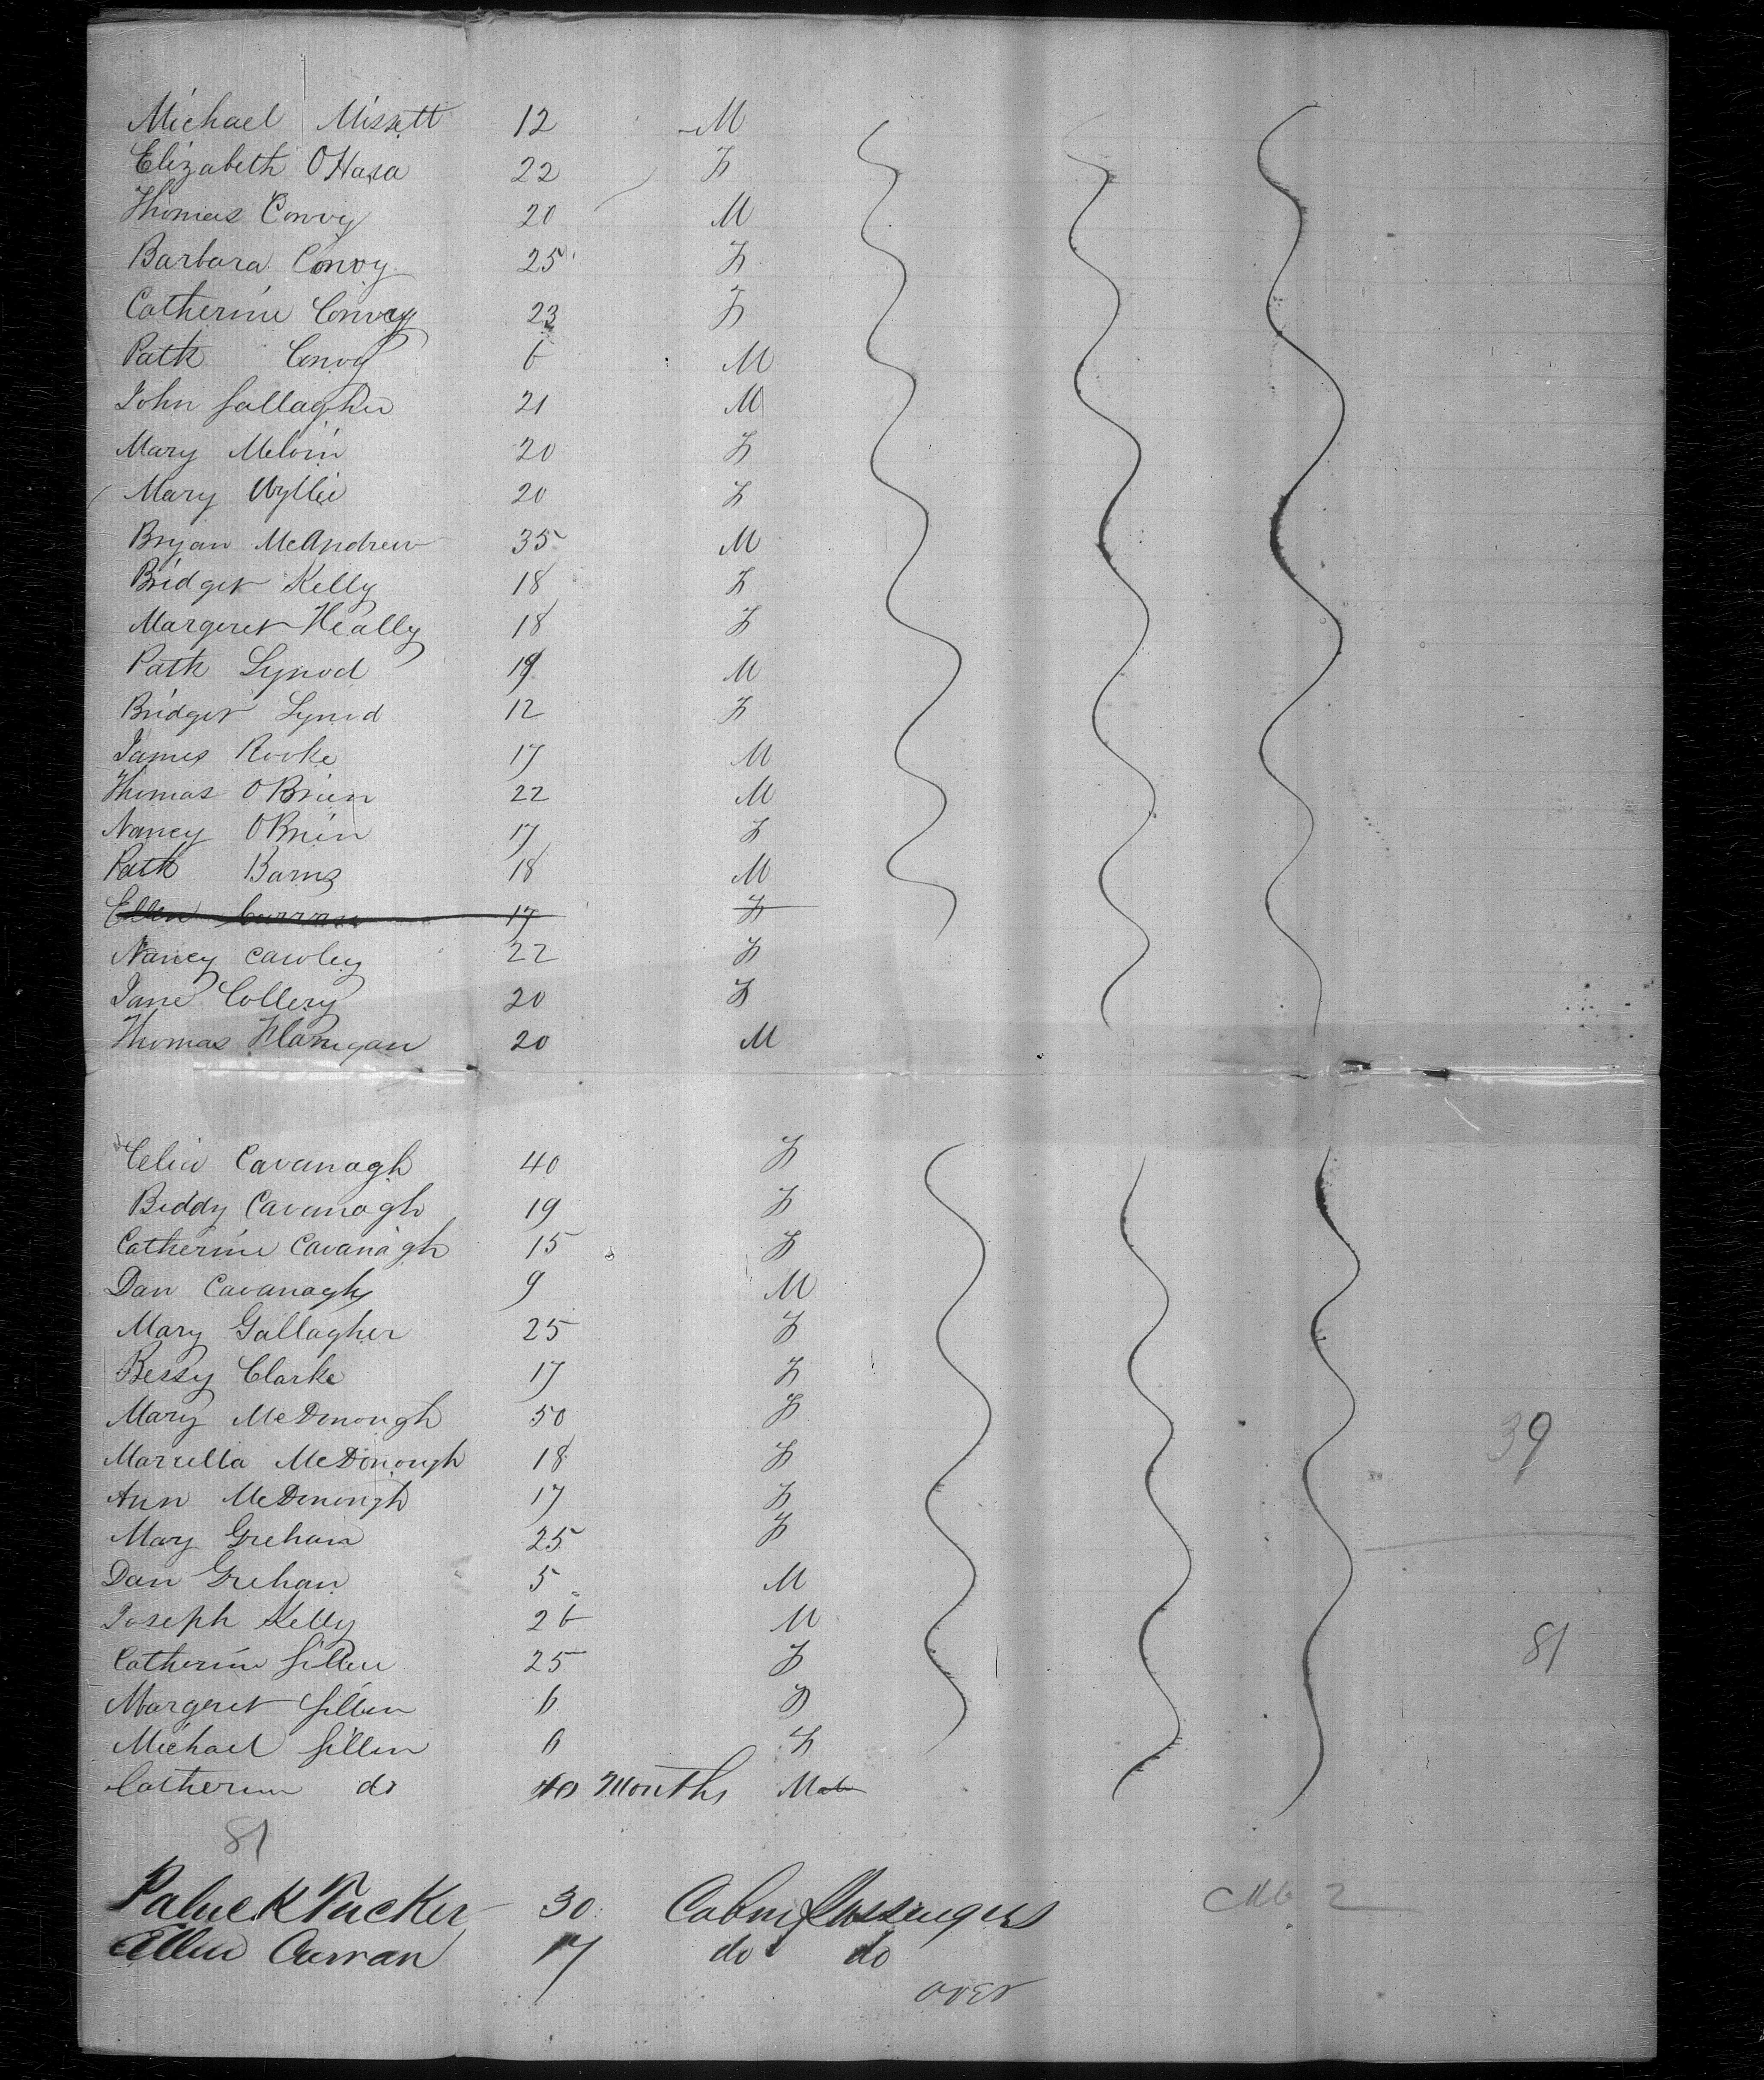 Michael Missett 12 M
Elizabeth OHara 22 F
Thomas Convy 20 M
Barbara Convoy 25 F
Catherine Convay 23 F
Patk Convy 6 M
John Gallagher 21 M
Mary Melvin 20 F
Mary Wyllie 20 F
Bryan McAndrew 35 M
Bridget Kelly 18 F
Margeret Heally 18 F
Patk Lynod 19 M
Bridget Lynod 12 F
James Rooke 17 M
Thomas OBrien 22 M
Nancy OBrien 17 F
Patk Barns 18 M
Ellen Curran 17 F
Nancy Cawley 22 F
Jane Collery 20 F
Thomas Flanigan 20 M
Celia Cavanagh 40 F
Biddy Cavanagh 19 F
Catherine Cavanagh 15 F
Dan Cavanagh 9 M
Mary Gallagher 25 F
Bessy Clarke 17 F
Mary McDonough 50 F 39
Marrella McDonough 18 F
Ann McDonough 17 F
Mary Grehan 25 F
Dan Grehan 5 M
Joseph Kelly 26 M 81
Catherine Gillen 25 F
Margeret Gillen 6 F
Michael Gillen 6 F
Catherine do 10 Months Male
81
Patrick Tucker 30 Cabin Passengers 2
Ellen Curran 17 do do
over